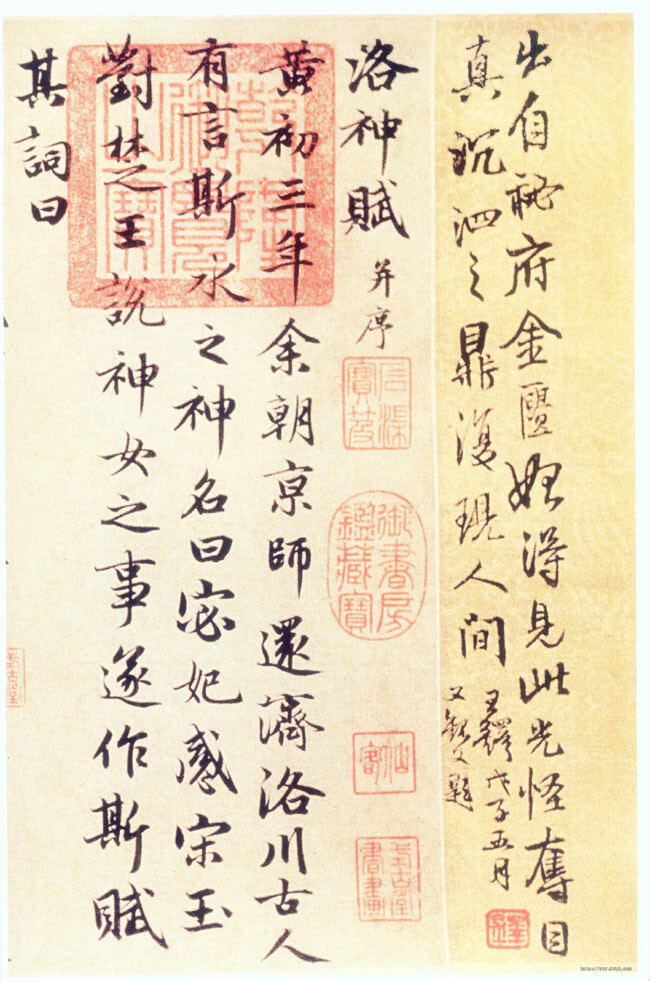 出自秘府金匱始得見此光怪奪目
真沉泗之鼎復現人間
王鐸戊子五月
洛神賦 并序
石渠寶笈
御書房鑑藏寶
式古堂書畫
黃初三年余朝京師還濟洛川古人
乾隆御覽之寶
有言斯水之神名曰宓妃感宋玉
對楚王說神女之事遂作斯賦
其詞曰
式古堂